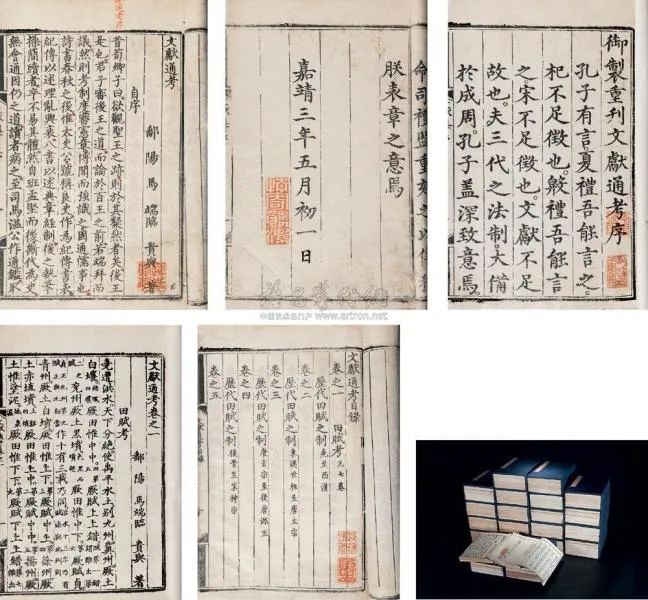 文獻通考
鄱陽馬端臨貴與著
自序
昔荀卿子曰欲觀聖王之跡則於其粲然者矣後王
是也君子審後王之道而論於百王之前若端拜而
議然則考制度審憲章博聞而強識之固通儒事也
詩書春秋之後惟太史公號稱良史作為紀傳書表
紀傳以述理亂興衰八書以述典章經制後之執筆
操簡牘者卒不易其體然自班孟堅而後斷代為史
無會通因仍之道讀者病之至司馬溫公作通鑑取
命司禮監重刻之以傳
朕表章之意焉
嘉靖三年五月初一日
御製重刊文獻通考序
孔子有言夏禮吾能言之。
杞不足徵也。殷禮吾能言
之宋不足徵也。文獻不足
故也。夫三代之法制。大備
於成周。孔子蓋深致意焉。
www.artron.net
文獻通考卷之一
鄱陽馬端臨貴與著
田賦考
堯遭洪水天下分絕使禹平水土別九州冀州厥土
白壤厥田惟中中厥賦上上錯
兗州厥土黑墳厥田惟中下厥賦貞
作十有三載乃同
青州厥土白墳厥田惟上下厥賦中上徐州厥
土赤埴墳厥田惟上中厥賦中中揚州厥
土惟塗泥厥田惟下下厥賦下上上錯
文獻通考目錄
卷之一
田賦考 凡七卷
歷代田賦之制 堯至西漢
卷之二
歷代田賦之制 東漢世祖至唐太宗
卷之三
歷代田賦之制 唐玄宗至後唐潞王
卷之四
歷代田賦之制 後晉至宋神宗
卷之五